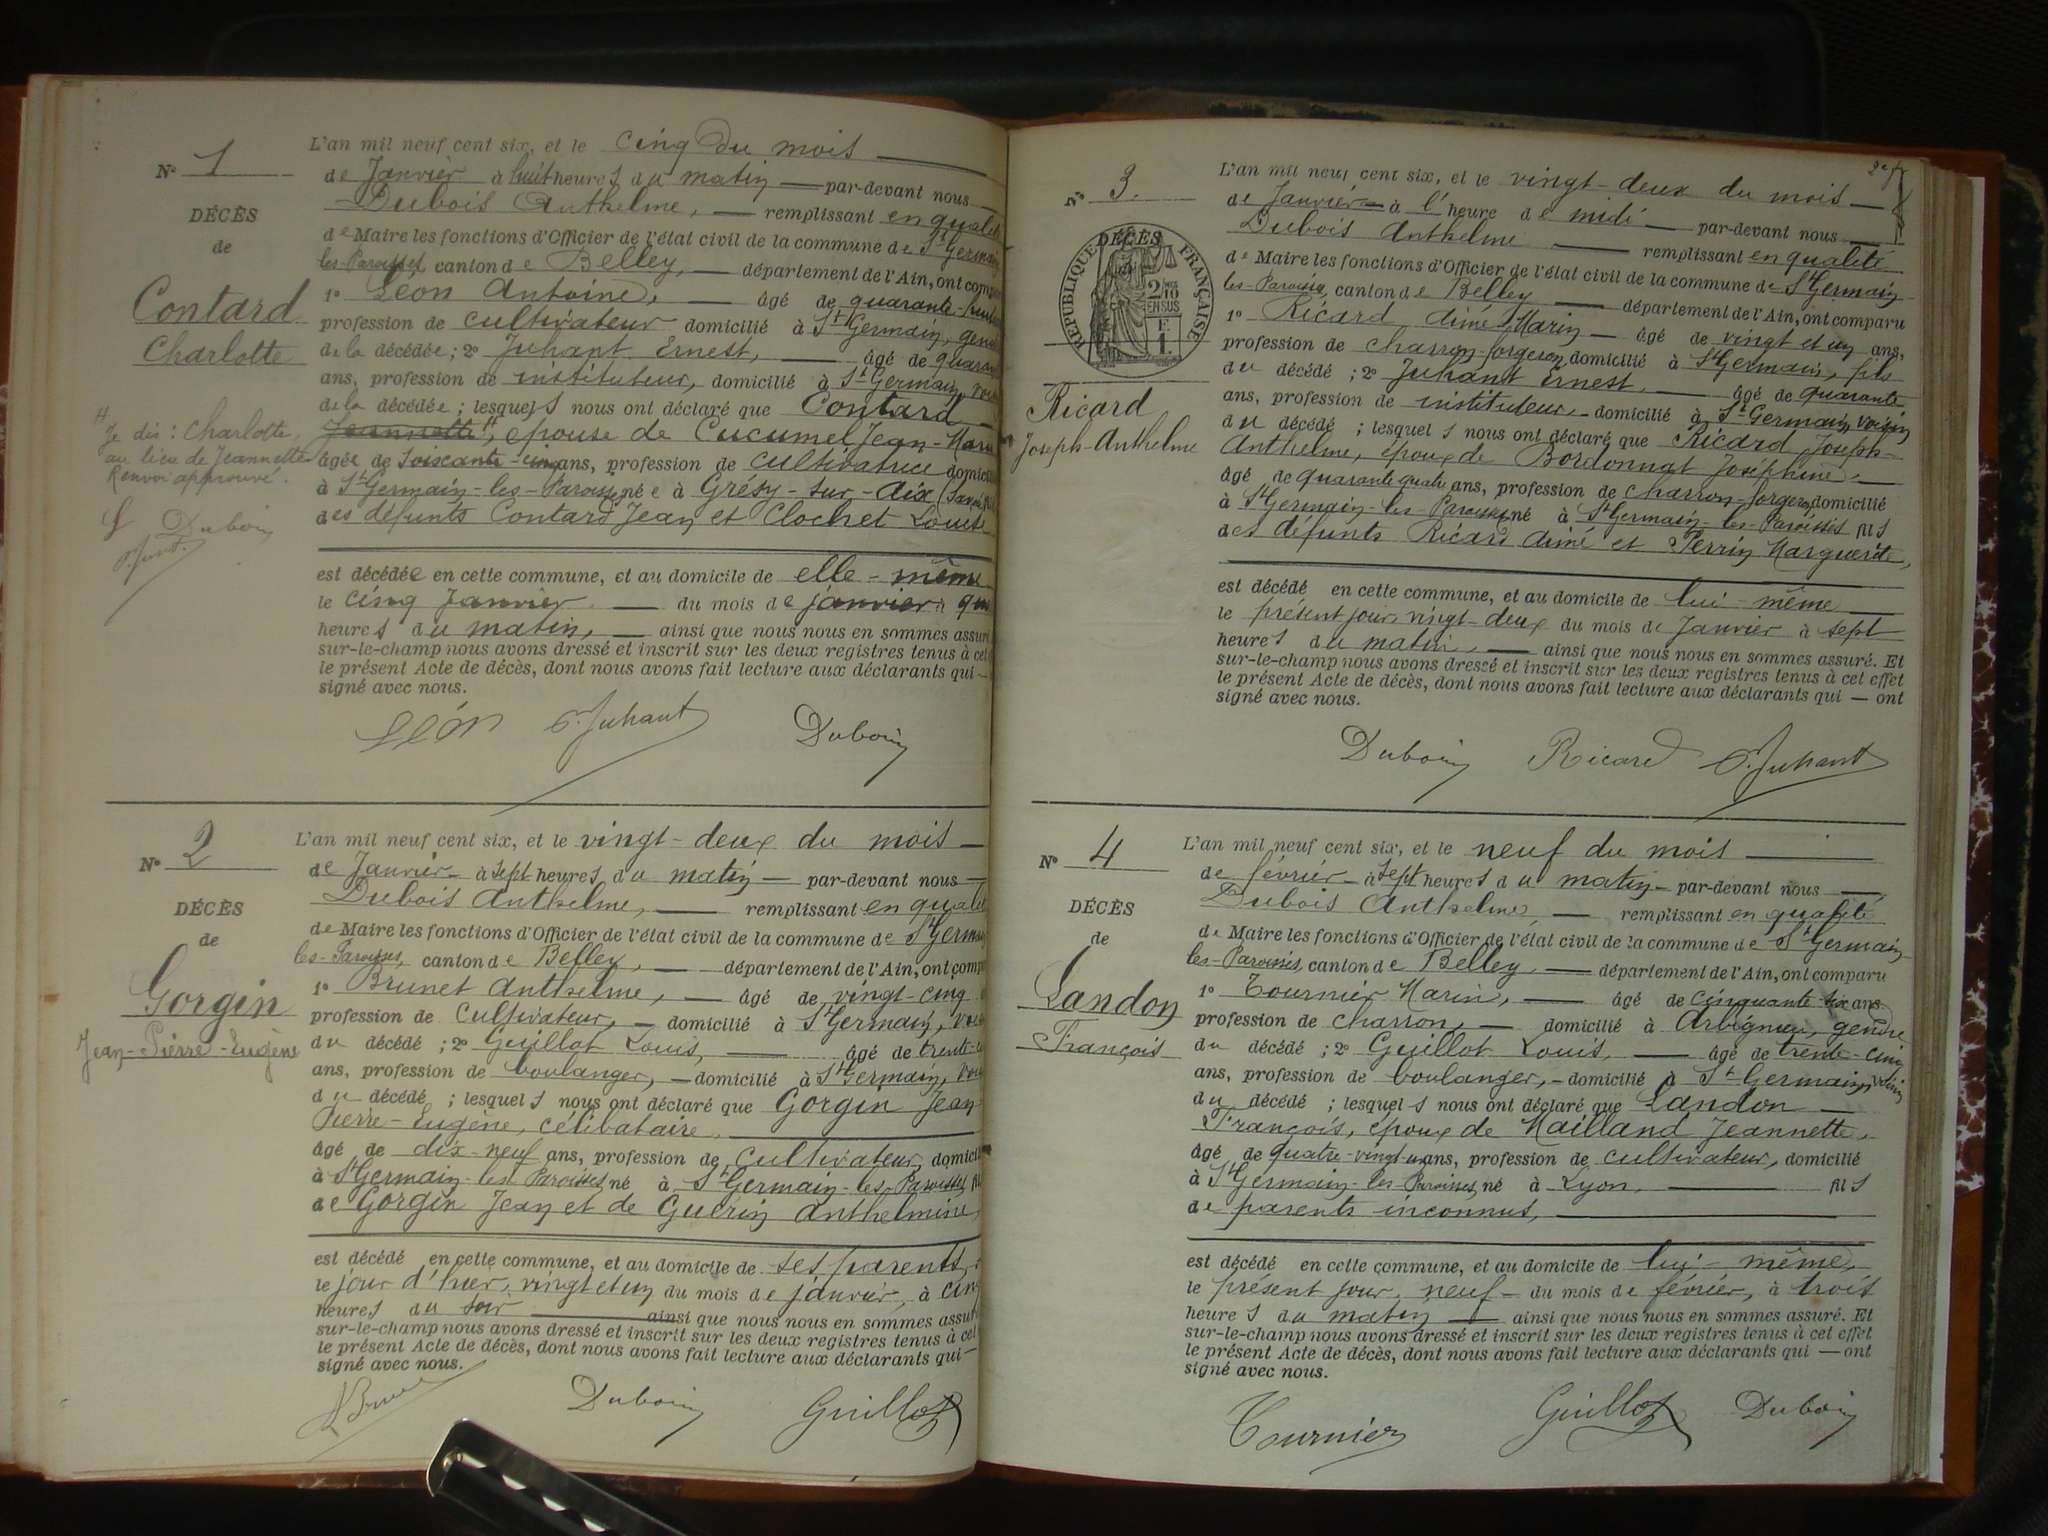 N° 1
DÉCÈS
de
Contard
Charlotte
Je dis : Charlotte,
au lieu de Jeannette
Renvoi approuvé.
Dubois
L'an mil neuf cent six, et le cinq du mois
de Janvier à huit heures du matin par-devant nous
Dubois Anthelme, remplissant en qualité
de Maire les fonctions d'Officier de l'état civil de la commune de St Germain
les-Paroisses canton de Belley, département de l'Ain, ont comp
1° Léon Antoine, âgé de quarante-huit
profession de cultivateur domicilié à St Germain, gen
de la décédée ; 2° Juhant Ernest, âgé de quaran
ans, profession de instituteur, domicilié à St Germain, voi
de la décédée ; lesquels nous ont déclaré que Contard
Jeannette, épouse de Cucumel Jean-Marie
âgée de soixante-cinq ans, profession de cultivatrice domicili
à St Germain-les-Paroisses née à Grésy-sur-Aix (Savoie)
des défunts Contard Jean et Clochet Louise
est décédée en cette commune, et au domicile de elle-même
le cinq Janvier du mois de janvier à
heures du matin, ainsi que nous nous en sommes assuré
sur-le-champ nous avons dressé et inscrit sur les deux registres tenus à cet
le présent Acte de décès, dont nous avons fait lecture aux déclarants qui
signé avec nous.
Léon E. Juhant Dubois
N° 2
DÉCÈS
de
Gorgin
Jean-Pierre-Eugène
L'an mil neuf cent six, et le vingt-deux du mois
de Janvier à sept heures du matin par-devant nous
Dubois Anthelme, remplissant en qualité
de Maire les fonctions d'Officier de l'état civil de la commune de St Germain
les-Paroisses, canton de Belley, département de l'Ain, ont comp
1° Brunet Anthelme, âgé de vingt-cinq
profession de cultivateur, domicilié à St Germain, voi
du décédé ; 2° Guillot Louis, âgé de trente-c
ans, profession de boulanger, domicilié à St Germain, voi
du décédé ; lesquels nous ont déclaré que Gorgin Jean-
Pierre-Eugène, célibataire,
âgé de dix-neuf ans, profession de cultivateur, domicili
à St Germain-les-Paroisses né à St Germain-les-Paroisses, fil
de Gorgin Jean et de Guérin Anthelmine,
est décédé en cette commune, et au domicile de ses parents,
le jour d'hier, vingt et un du mois de janvier, à cinq
heures du soir ainsi que nous nous en sommes assuré
sur-le-champ nous avons dressé et inscrit sur les deux registres tenus à cet
le présent Acte de décès, dont nous avons fait lecture aux déclarants qui
signé avec nous.
Brunet Dubois Guillot
N° 3.
DÉCÈS
RÉPUBLIQUE FRANÇAISE
2/10 EN SUS
1 F.
Ricard
Joseph-Anthelme
L'an mil neuf cent six, et le vingt-deux du mois
de Janvier à l'heure de midi par-devant nous
Dubois Anthelme remplissant en qualité
de Maire les fonctions d'Officier de l'état civil de la commune de St Germain
les-Paroisses, canton de Belley département de l'Ain, ont comparu
1° Ricard Aimé-Marin âgé de vingt et un ans,
profession de charron-forgeron domicilié à St Germain, fils
du décédé ; 2° Juhant Ernest âgé de quarante
ans, profession de instituteur, domicilié à St Germain, voisin
du décédé ; lesquels nous ont déclaré que Ricard Joseph-
Anthelme, époux de Bordonnat Joséphine,
âgé de quarante quatre ans, profession de charron-forgeron domicilié
à St Germain-les-Paroisses né à St Germain-les-Paroisses fils
des défunts Ricard Aimé et Perrin Marguerite,
est décédé en cette commune, et au domicile de lui-même
le présent jour, vingt-deux du mois de Janvier à sept
heures du matin, ainsi que nous nous en sommes assuré. Et
sur-le-champ nous avons dressé et inscrit sur les deux registres tenus à cet effet
le présent Acte de décès, dont nous avons fait lecture aux déclarants qui — ont
signé avec nous.
Dubois Ricard E. Juhant
N° 4
DÉCÈS
de
Landon
François
L'an mil neuf cent six, et le neuf du mois
de février à sept heures du matin par-devant nous
Dubois Anthelme, remplissant en qualité
de Maire les fonctions d'Officier de l'état civil de la commune de St Germain-
les-Paroisses, canton de Belley, département de l'Ain, ont comparu
1° Tournier Marin, âgé de cinquante-six ans
profession de charron, domicilié à Arbignieu, gendre
du décédé ; 2° Guillot Louis, âgé de trente-cinq
ans, profession de boulanger, domicilié à St Germain, voisin
du décédé ; lesquels nous ont déclaré que Landon
François, époux de Mailland Jeannette,
âgé de quatre-vingt-un ans, profession de cultivateur, domicilié
à St Germain-les-Paroisses, né à Lyon, fils
de parents inconnus,
est décédé en cette commune, et au domicile de lui-même,
le présent jour, neuf du mois de février, à trois
heures du matin ainsi que nous nous en sommes assuré. Et
sur-le-champ nous avons dressé et inscrit sur les deux registres tenus à cet effet
le présent Acte de décès, dont nous avons fait lecture aux déclarants qui — ont
signé avec nous.
Tournier Guillot Dubois